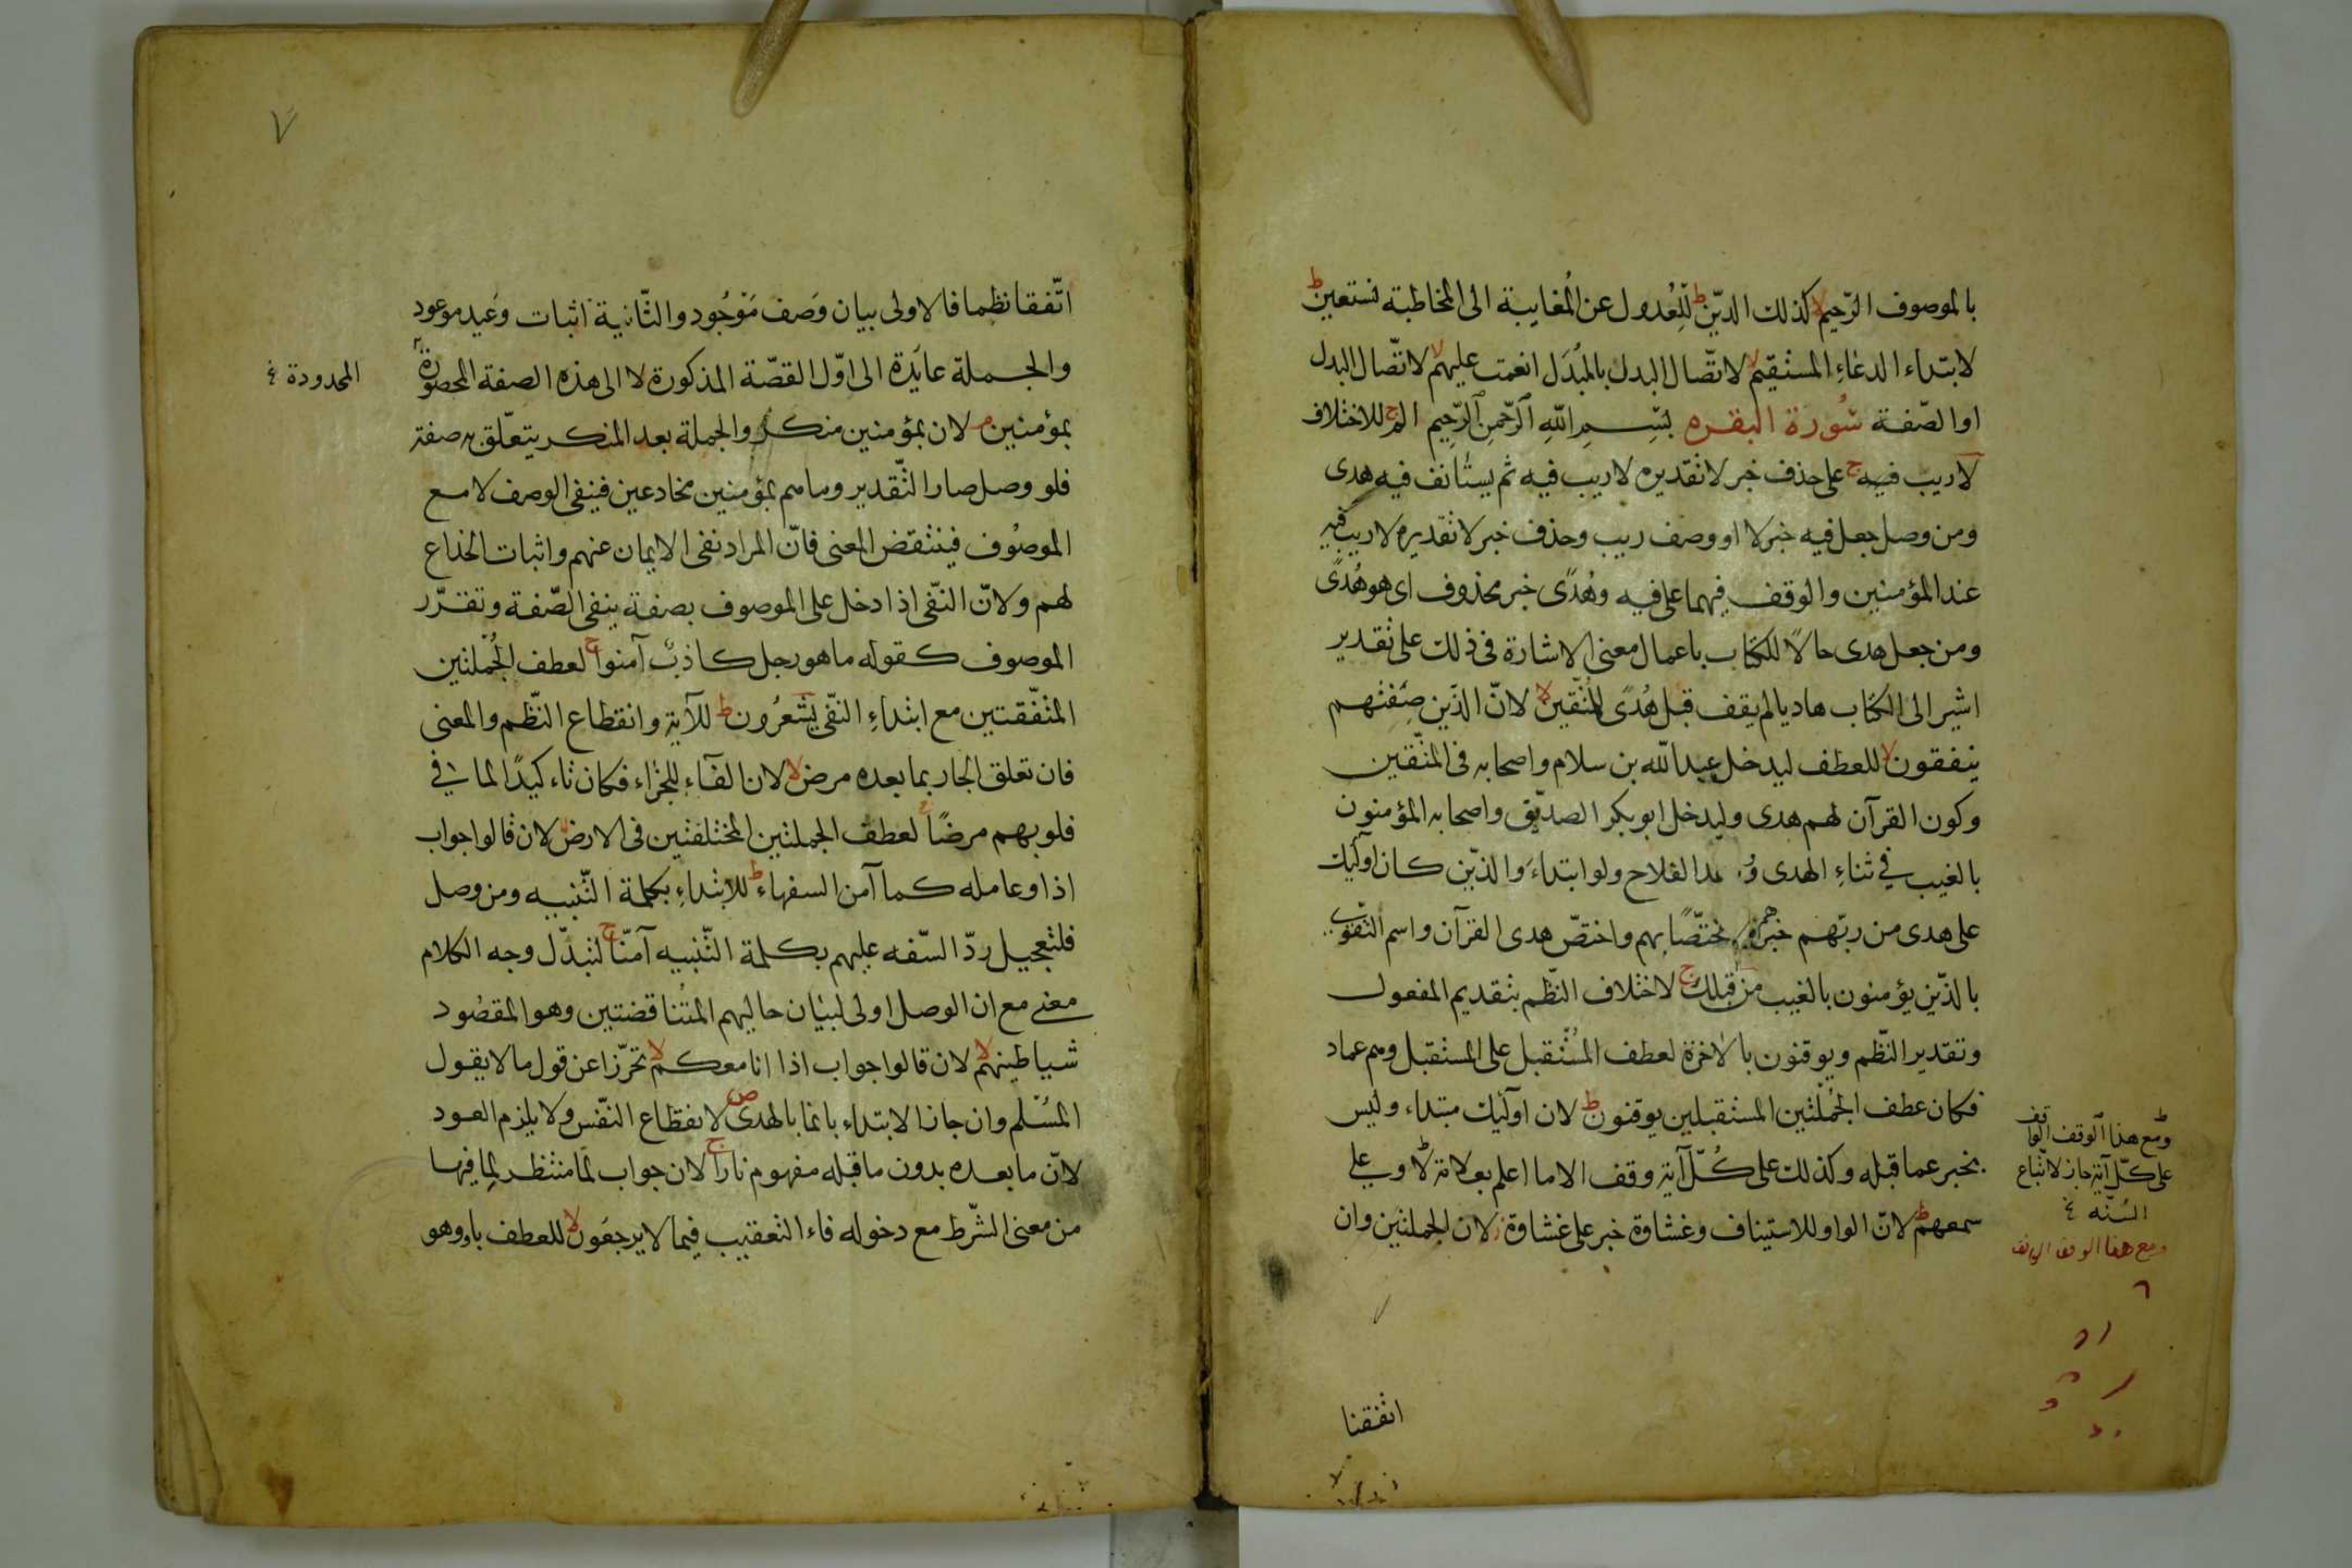 بالموصوف الرّحيم لا كذلك الدّين ط للعُدول عن المُغايبة الى المخاطبة نستعين ط
لابتداء الدعاءِ المستقيم لا لاتّصال البدل بالمُبدَل انعمت عليهم لا لاتّصال البدل
او الصّفة سُورة البقره بِسْمِ اللهِ الرّحْمنِ الرّحِيمِ الم ج للاختلاف
لا ريب فيه ج على حذف خبر لا تقديره لا ريب فيه ثم يستأنف فيه هدى
ومن وصل جعل فيه خبر لا او وصف ريب وحذف خبر لا تقديره لا ريب فيه
عند المؤمنين والوقف فيهما على فيه وهُدًى خبر محذوف اى هو هُدًى
ومن جعل هدى حالًا للكتاب باعمال معنى الاشارة فى ذلك على تقدير
اشير الى الكتاب هاديا لم يقف قبل هُدًى للمُتّقين لا لانّ الذّين صِفتهم
ينفقون لا للعطف ليدخل عبد الله بن سلام واصحابه فى المتّقين
وكون القرآن لهم هدى وليدخل ابو بكر الصديّق واصحابه المؤمنون
بالغيب فى ثناءِ الهدى الفلاح ولو ابتداءَ والذّين كان اولئك
على هدى من ربّهم خبرهم مختصًّا بهم واختصّ هدى القرآن واسم التقوى
بالذّين يؤمنون بالغيب من قبلك ج لاختلاف النظّم بتقديم المفعول
وتقدير النظّم ويوقنون بالاخرة لعطف المُسْتقبل على المستقبل وهم عماد
فكان عطف الجُمْلتين المستقبلين يوقنون ط لان اولئك مبتداء وليس
بخبر عما قبله وكذلك على كُلّ آية وقف الا ما اعلم بعلامة لا وعلى
سمعهم ط لانّ الواو للاستيناف وغشاوة خبر على غشاوة ز لان الجملتين وان
ومع هذا الوقف الواقف
على كلّ آية جاز لاتّباع
السُنّه
ومع هذا الوقف الواقف
اتفقتا
٧
اتّفقا نظما فالاولى بيان وَصف مَوْجُود والثّانية اثبات وَعيد موعود
والجملة عايدة الى اوّل القصّة المذكورة لا الى هذه الصفة المحصورة
المحدودة
بمؤمنين م لان بمؤمنين منكر والجملة بعد المنكر يتعلّق به صفة
فلو وصل صار التّقدير وما هم بمؤمنين مخادعين فينفى الوصف لا مع
الموصُوف فينتقض المعنى فانّ المراد نفى الايمان عنهم واثبات الخداع
لهم ولانّ النّفى اذا دخل على الموصوف بصفة ينفى الصّفة وتقرّر
الموصوف كقوله ما هو رجل كاذب آمنوا ج لعطف الجُمْلتين
المتّفقتين مع ابتداءِ النّفى يَشْعرُون ط للآية وانقطاع النظّم والمعنى
فان تعلق الجار بما بعده مرض لا لان الفآء للجزاء فكان تاءكيدًا لما فى
قلوبهم مرضًا ج لعطف الجملتين المختلفتين فى الارض لا لان قالوا جواب
اذا وعامله كما آمن السفهاء ط للابتداءِ بكلمة التّنبيه ومن وصل
فلتعجيل ردّ السّفه عليهم بكلمة التّنبيه آمنّا ج لتبدّل وجه الكلام
معنى مع ان الوصل اولى لبيان حاليهم المتُناقضتين وهو المقصُود
شياطينهم لا لان قالوا جواب اذا انا معكم لا تحرّزا عن قول ما لا يقول
المُسْلم وان جاز الابتداء بانما بالهدى ص لانقطاع النّفس ولا يلزم العود
لانّ ما بعده بدون ما قبله مفهوم نارا ج لان جواب لَمّا منتظر لِما فيها
من معنى الشّرط مع دخوله فاء التعقيب فيما لا يرجعُون لا للعطف باو وهو